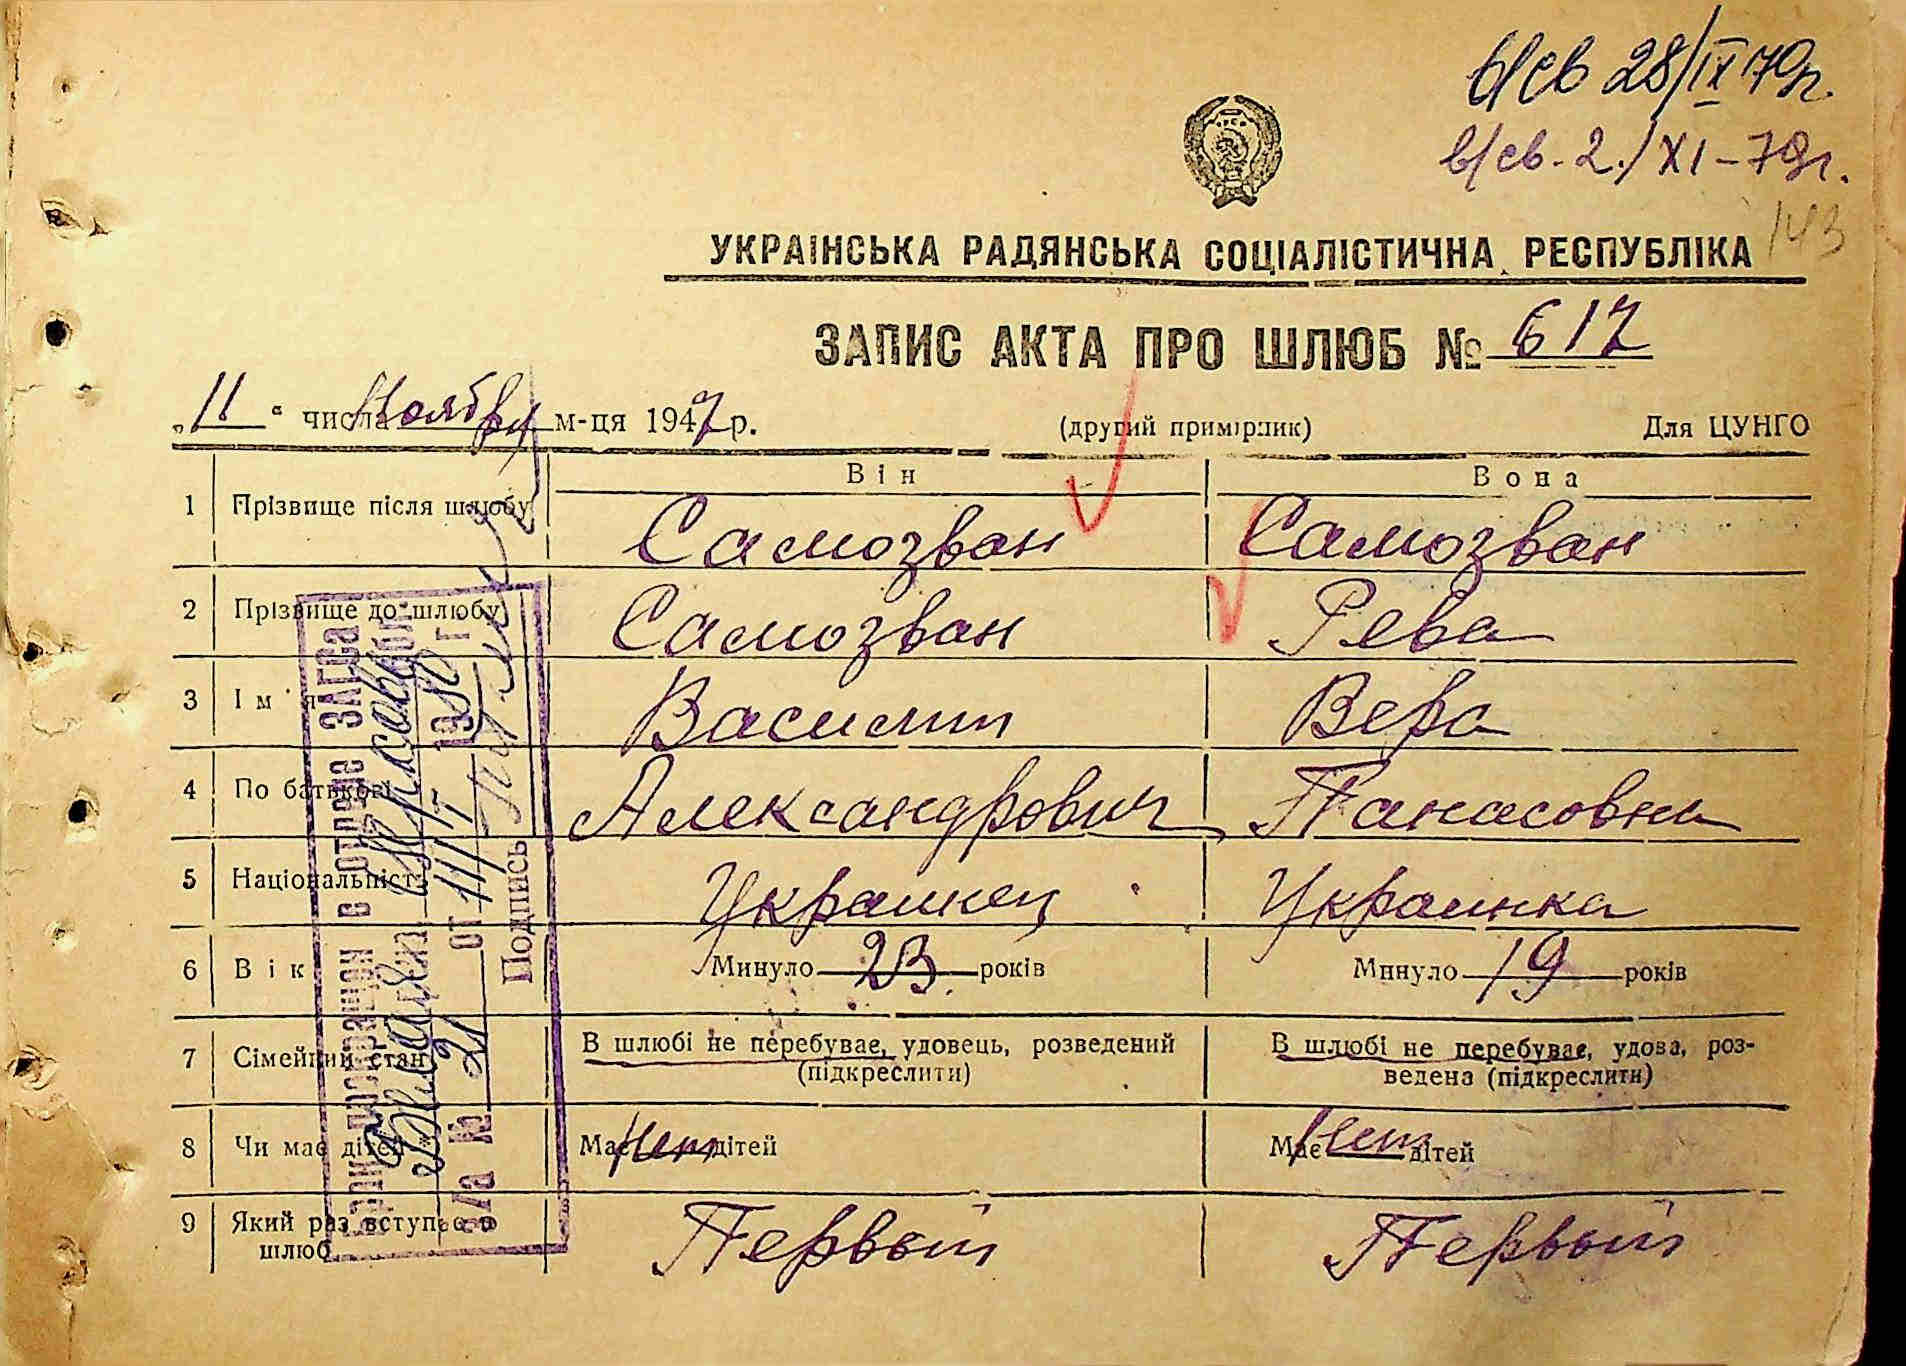 в/св 28/IX 79г.
в/св. 2./XI-79г.
143
УКРАЇНСЬКА РАДЯНСЬКА СОЦІАЛІСТИЧНА РЕСПУБЛІКА
ЗАПИС АКТА ПРО ШЛЮБ № 617
„11“ числа Ноября м-ця 1947 р. (другий примірник) Для ЦУНГО
Він Вона
1 Прізвище після шлюбу Самозван Самозван
2 Прізвище до шлюбу Самозван Рева
3 Ім'я Василий Вера
4 По батькові Александрович Панасовна
5 Національність Украинец Украинка
6 Вік Минуло 23 років Минуло 19 років
7 Сімейний стан В шлюбі не перебуває, удовець, розведений В шлюбі не перебуває, удова, роз-
(підкреслити) ведена (підкреслити)
8 Чи має дітей Має нет дітей Має нет дітей
9 Який раз вступає в Первый Первый
шлюб
Брак расторгнут в отделе ЗАГСа
а/з № 21 от 11/III 1950 г.
Подпись